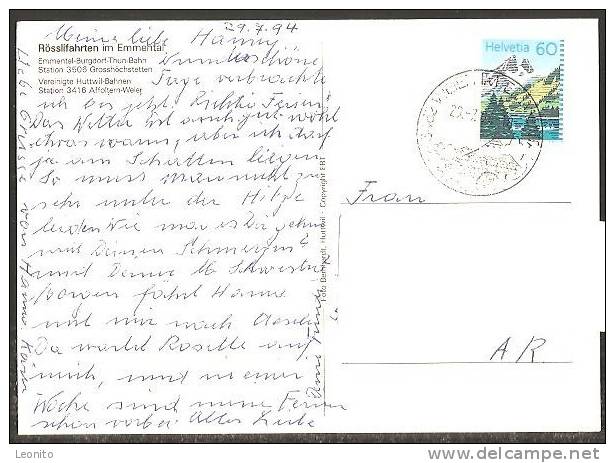 29.7.94
Meine liebe Hanny
Rösslifahrten im Emmental
Emmental-Burgdorf-Thun-Bahn
Station 3506 Grosshöchstetten
Vereinigte Huttwil-Bahnen
Station 3416 Affoltern-Weier
Wunderschöne
Tage verbrachte
ich bis jetzt. Richtig Ferien!
Das Wetter ist auch gut wohl
etwas warm, aber ich darf
ja am Schatten liegen.
So muss man nicht zu
sehr unter der Hitze
leiden. Wie mag es Dir gehen
mit Deinen Schmerzen?
und Deine Schwester
Morgen fährt Hanne
mit mir nach
Da wartet Roselle auf
mich, und in einer
Woche sind meine Ferien
schon vorbei. Alles Liebe
Liebe Grüsse von Hanne
Foto Bernhardt, Huttwil - Copyright EBT
Helvetia 60
Frau
A R.
www.delcampe.net